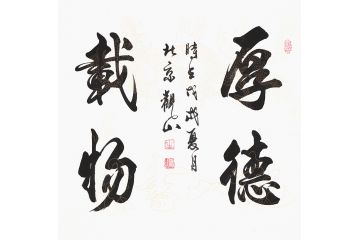 厚德
載物
時在戊戌夏月
北京觀山